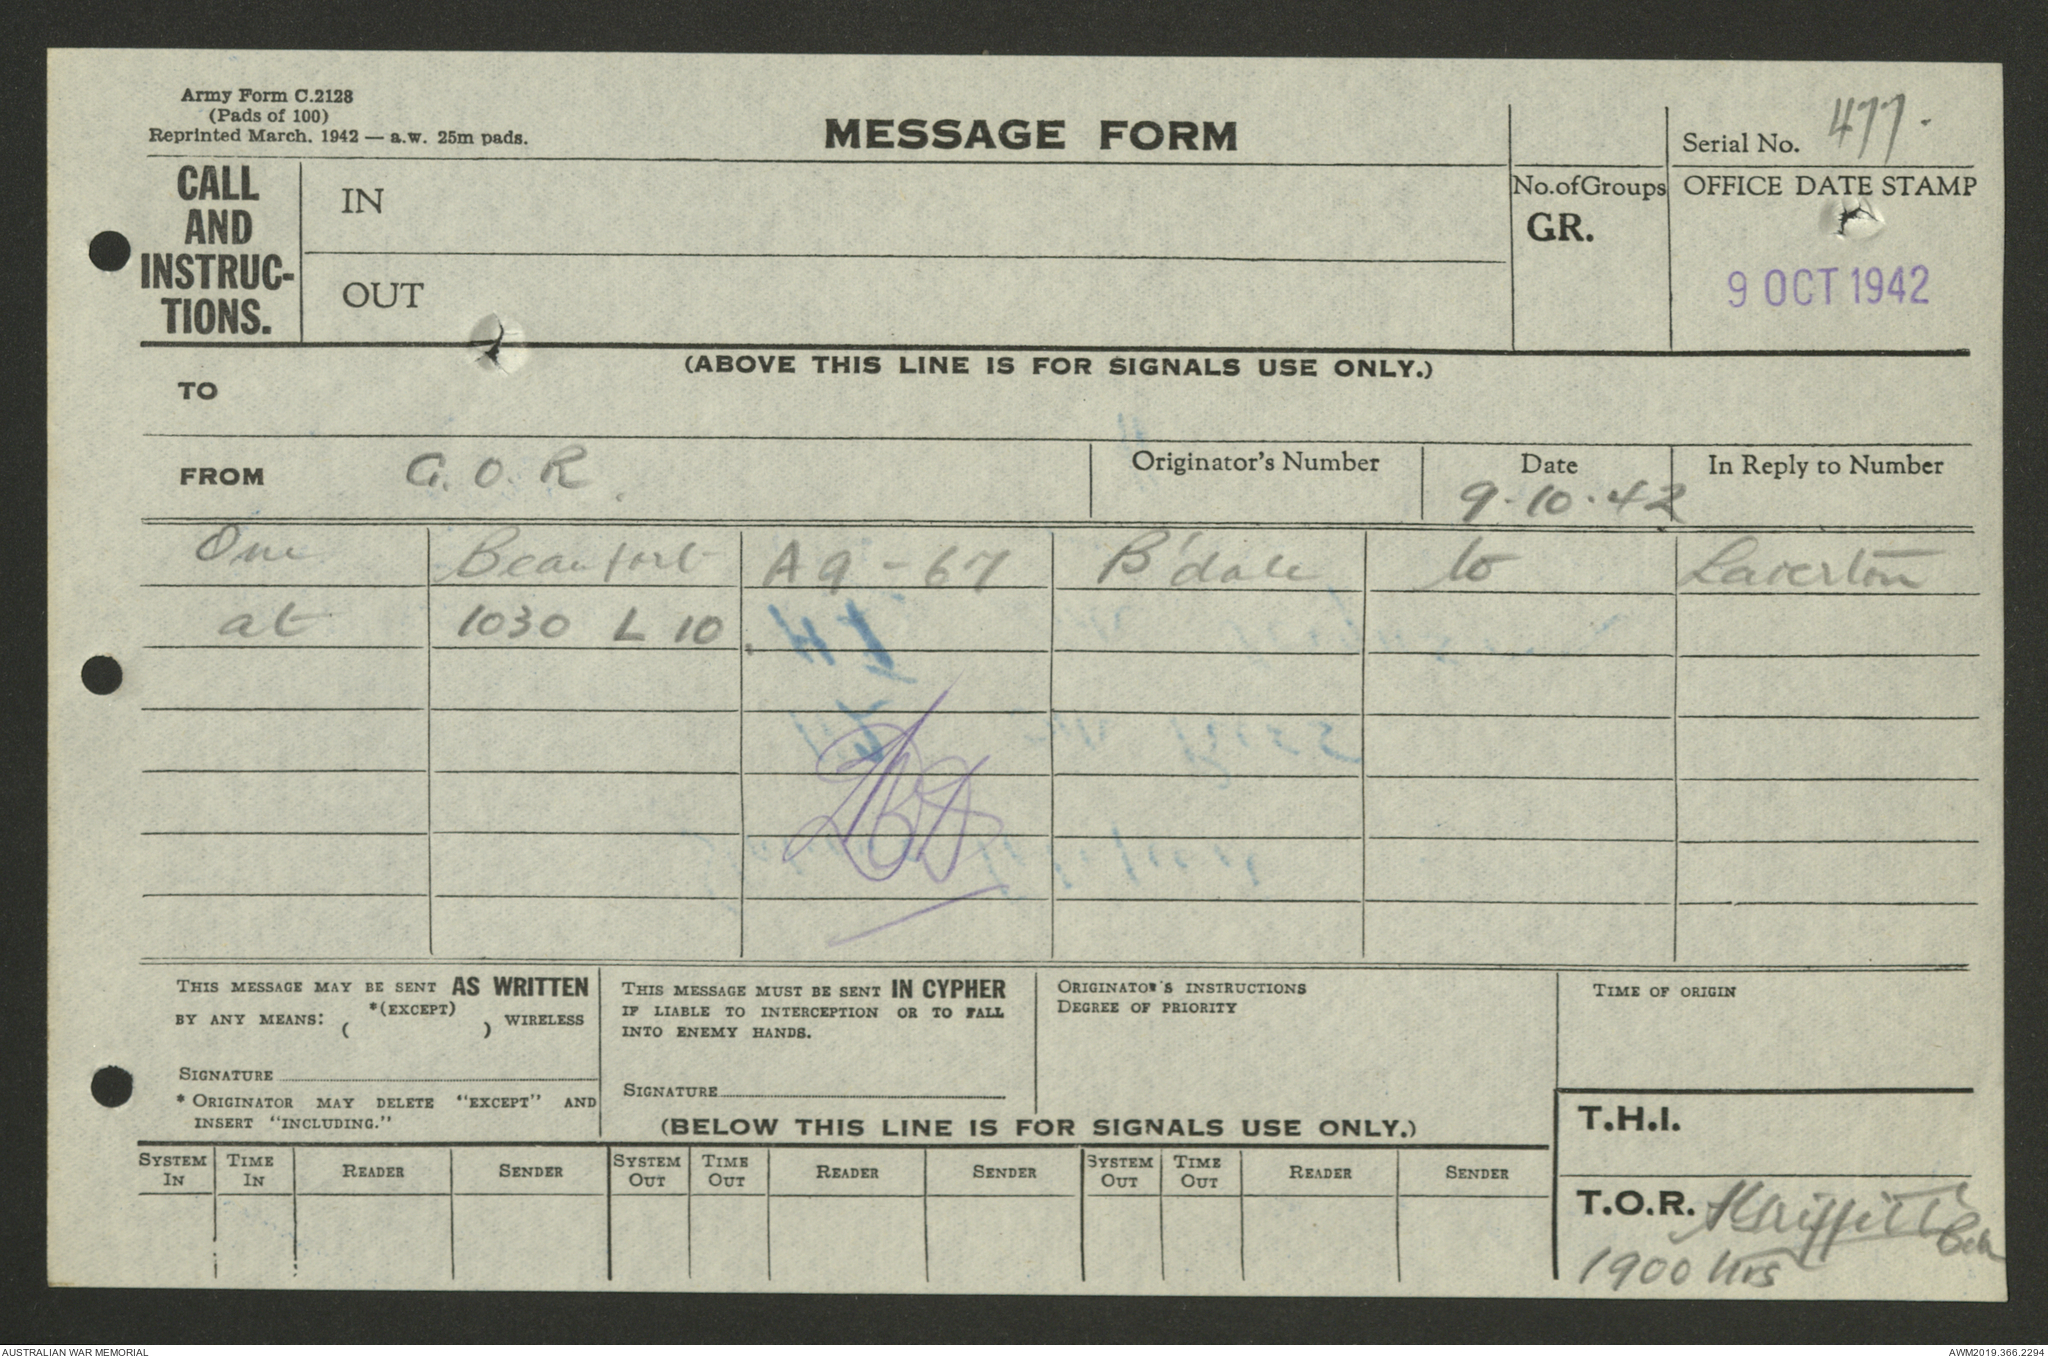 Army Form C.2128
(Pads of 100)
Reprinted March, 1942 — a.w. 25m pads.
MESSAGE FORM
Serial No. 477.
CALL
AND
INSTRUC-
TIONS.
IN
OUT
No.ofGroups
GR.
OFFICE DATE STAMP
9 OCT 1942
(ABOVE THIS LINE IS FOR SIGNALS USE ONLY.)
TO
FROM G.O.R.
Originator's Number
Date
9.10.42
In Reply to Number
One Beaufort A9-67 B'dale to Laverton
at 1030 L 10.
THIS MESSAGE MAY BE SENT AS WRITTEN
BY ANY MEANS: *(EXCEPT) ( ) WIRELESS
SIGNATURE
* ORIGINATOR MAY DELETE "EXCEPT" AND
INSERT "INCLUDING."
THIS MESSAGE MUST BE SENT IN CYPHER
IF LIABLE TO INTERCEPTION OR TO FALL
INTO ENEMY HANDS.
SIGNATURE
ORIGINATOR'S INSTRUCTIONS
DEGREE OF PRIORITY
TIME OF ORIGIN
(BELOW THIS LINE IS FOR SIGNALS USE ONLY.)
T.H.I.
SYSTEM IN TIME IN READER SENDER SYSTEM OUT TIME OUT READER SENDER SYSTEM OUT TIME OUT READER SENDER
T.O.R.
1900 hrs
AUSTRALIAN WAR MEMORIAL
AWM2019.366.2294